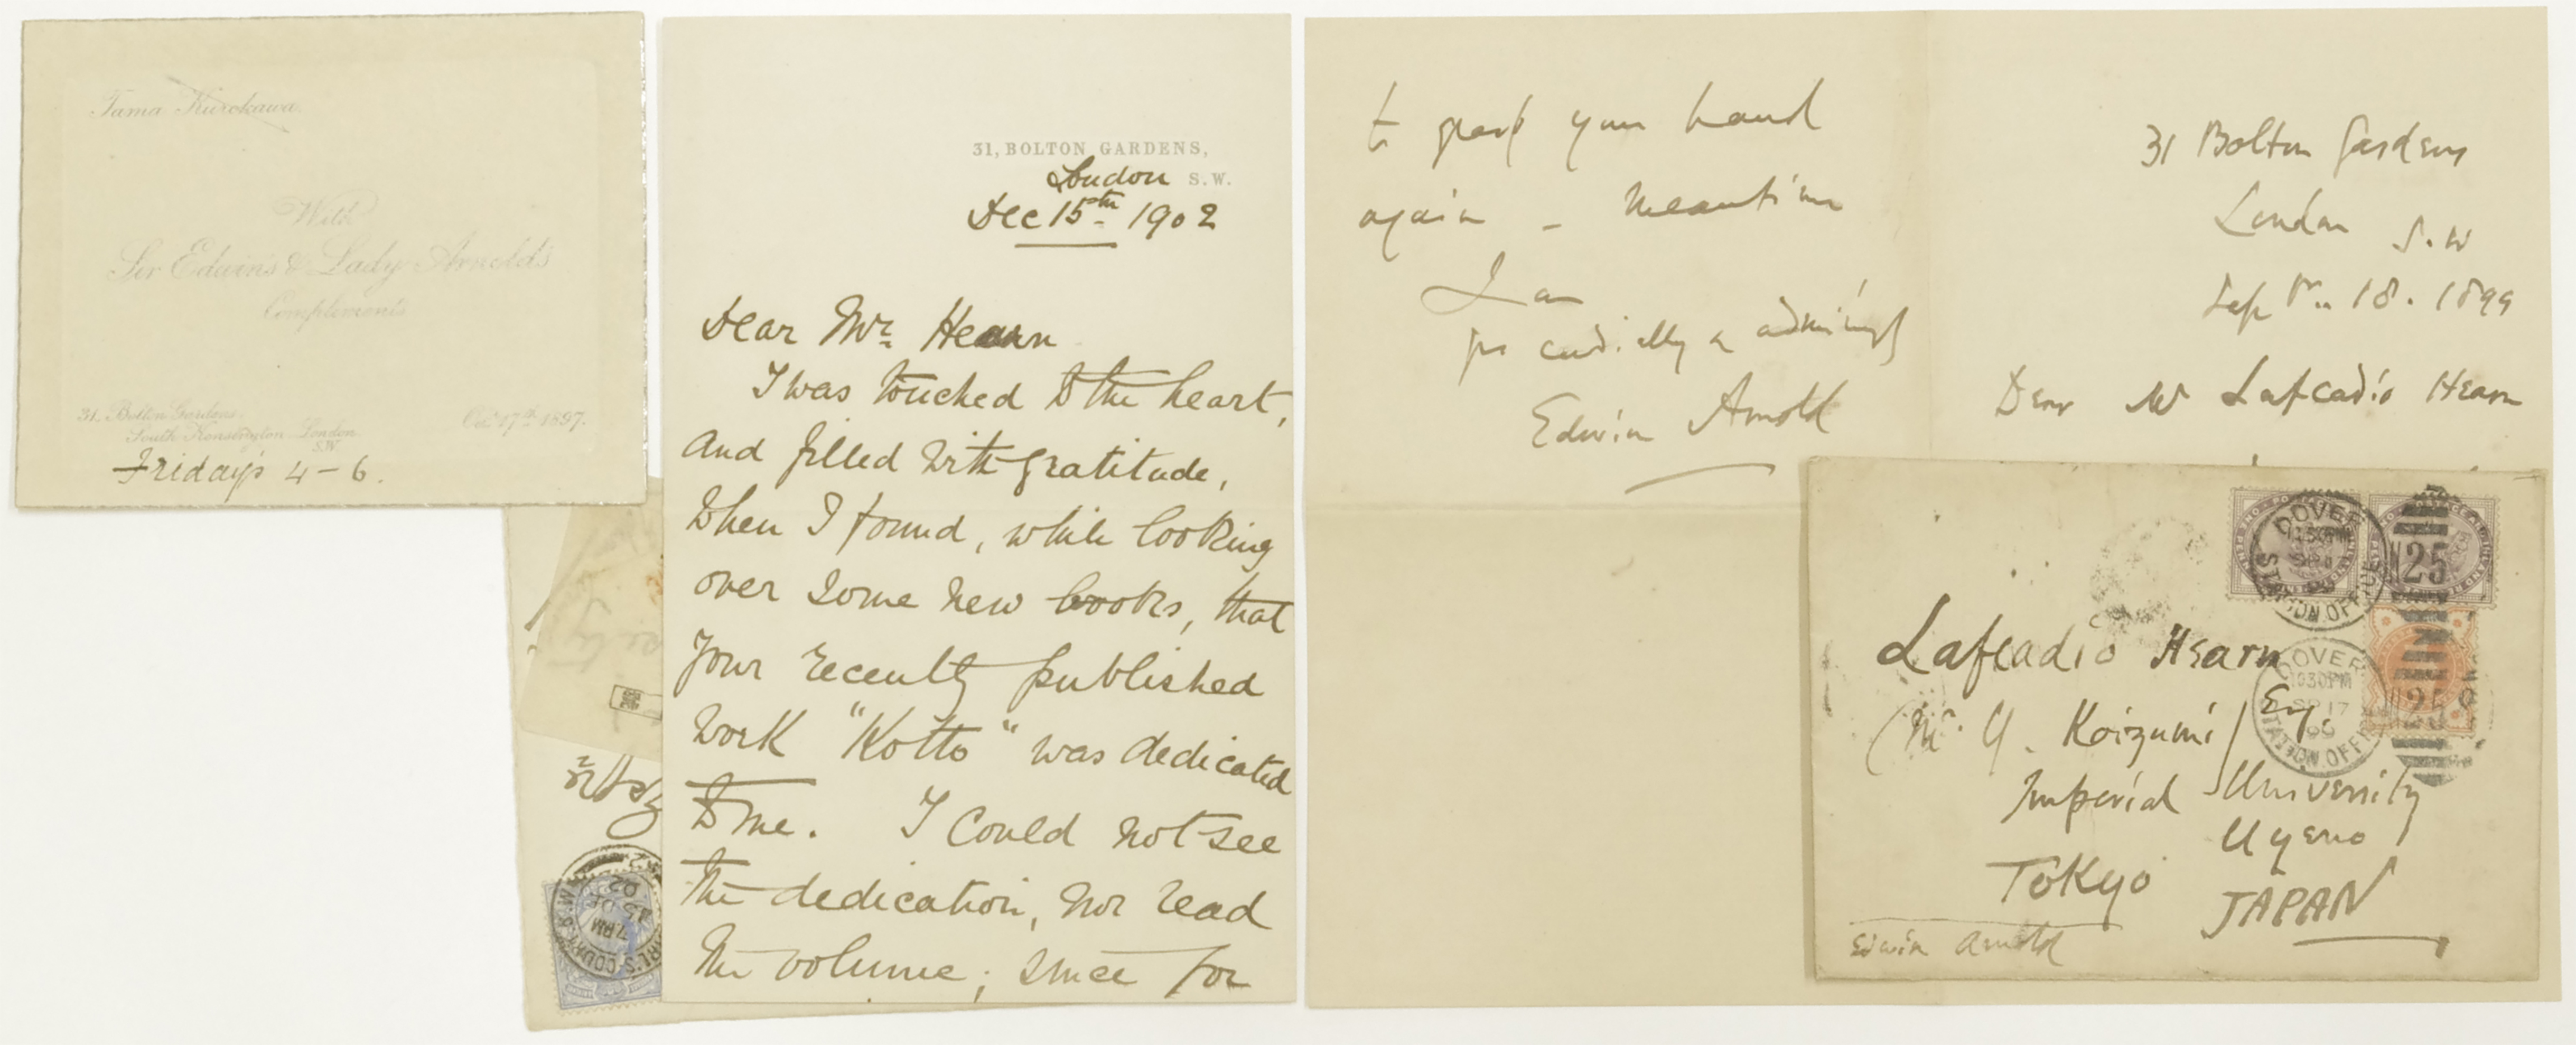 Tama Kurokawa.
With
Sir Edwin's & Lady Arnold's
Compliments
31, Bolton Gardens.
South Kensington London
S.W.
Oct. 17th 1897.
Fridays 4-6.
31, BOLTON GARDENS,
London S.W.
Dec 15th 1902
Dear Mr. Hearn
I was touched to the heart,
and filled with gratitude,
when I found, while looking
over some new books, that
your recently published
work "Kotto" was dedicated
to me. I could not see
the dedication, nor read
the volume; since for
to grasp your hand
again - Meantime
I am
yrs cordially & admiringly
Edwin Arnold
31 Bolton Gardens
London S.W
Sept. 18. 1899
Dear Mr Lafcadio Hearn
DOVER
STATION OFFICE
25
Lafcadio Hearn
Esq.
DOVER
1030PM
SP 17
99
STATION OFFICE
25
(Mr. Y. Koizumi)
Imperial University
Uyeno
Tokyo
JAPAN
Edwin Arnold
EARL'S COURT S.W.
7. PM
15 DE
02